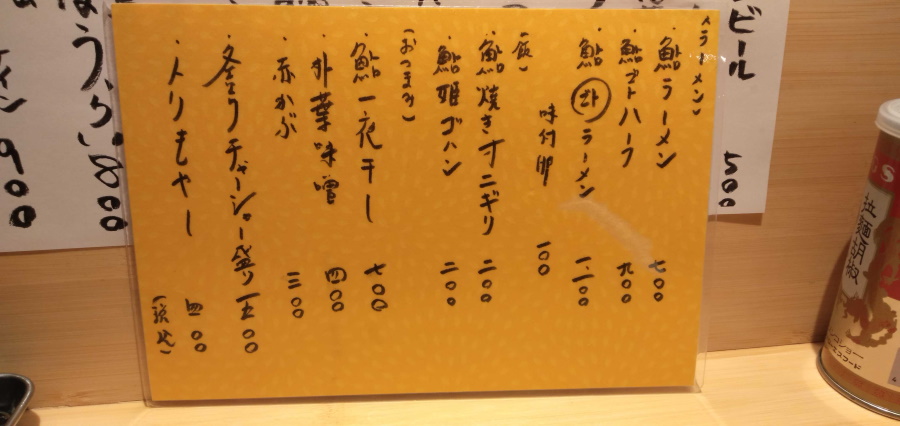 ビール
500
(ラーメン)
・鮎ラーメン 七〇〇
・鮎ゴトハーフ 九〇〇
・鮎ラーメン 一、一〇〇
味付卵 一〇〇
(飯)
・鮎焼きオニギリ 二〇〇
・鮎姫ゴハン 二〇〇
(おつまみ)
・鮎一夜干し 七〇〇
・朴葉味噌 四〇〇
・赤かぶ 三〇〇
チャーシュー盛り 一五〇〇
四〇〇
(税込)
800
イン900
拉麺胡椒